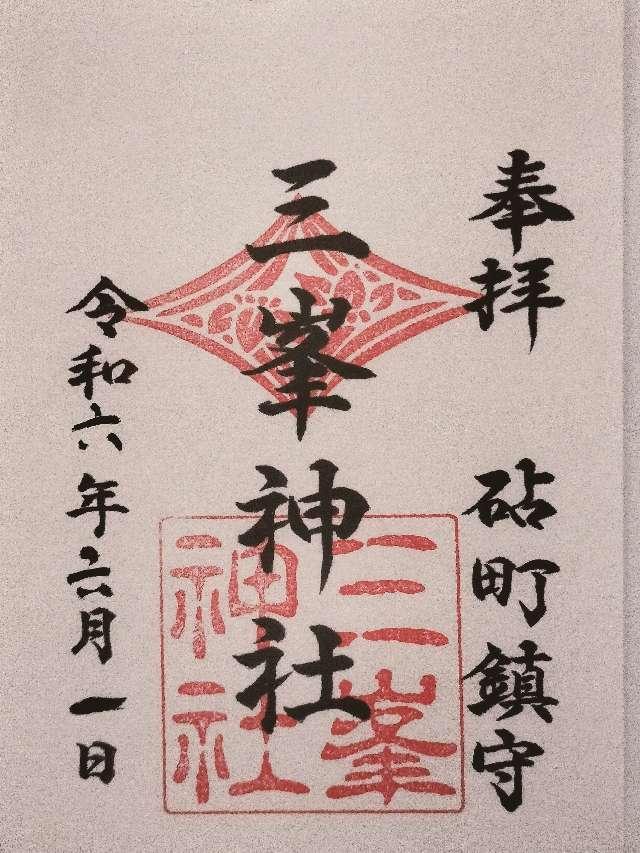 奉拝
砧町鎮守
三峯神社
三峯
神社
令和六年六月一日